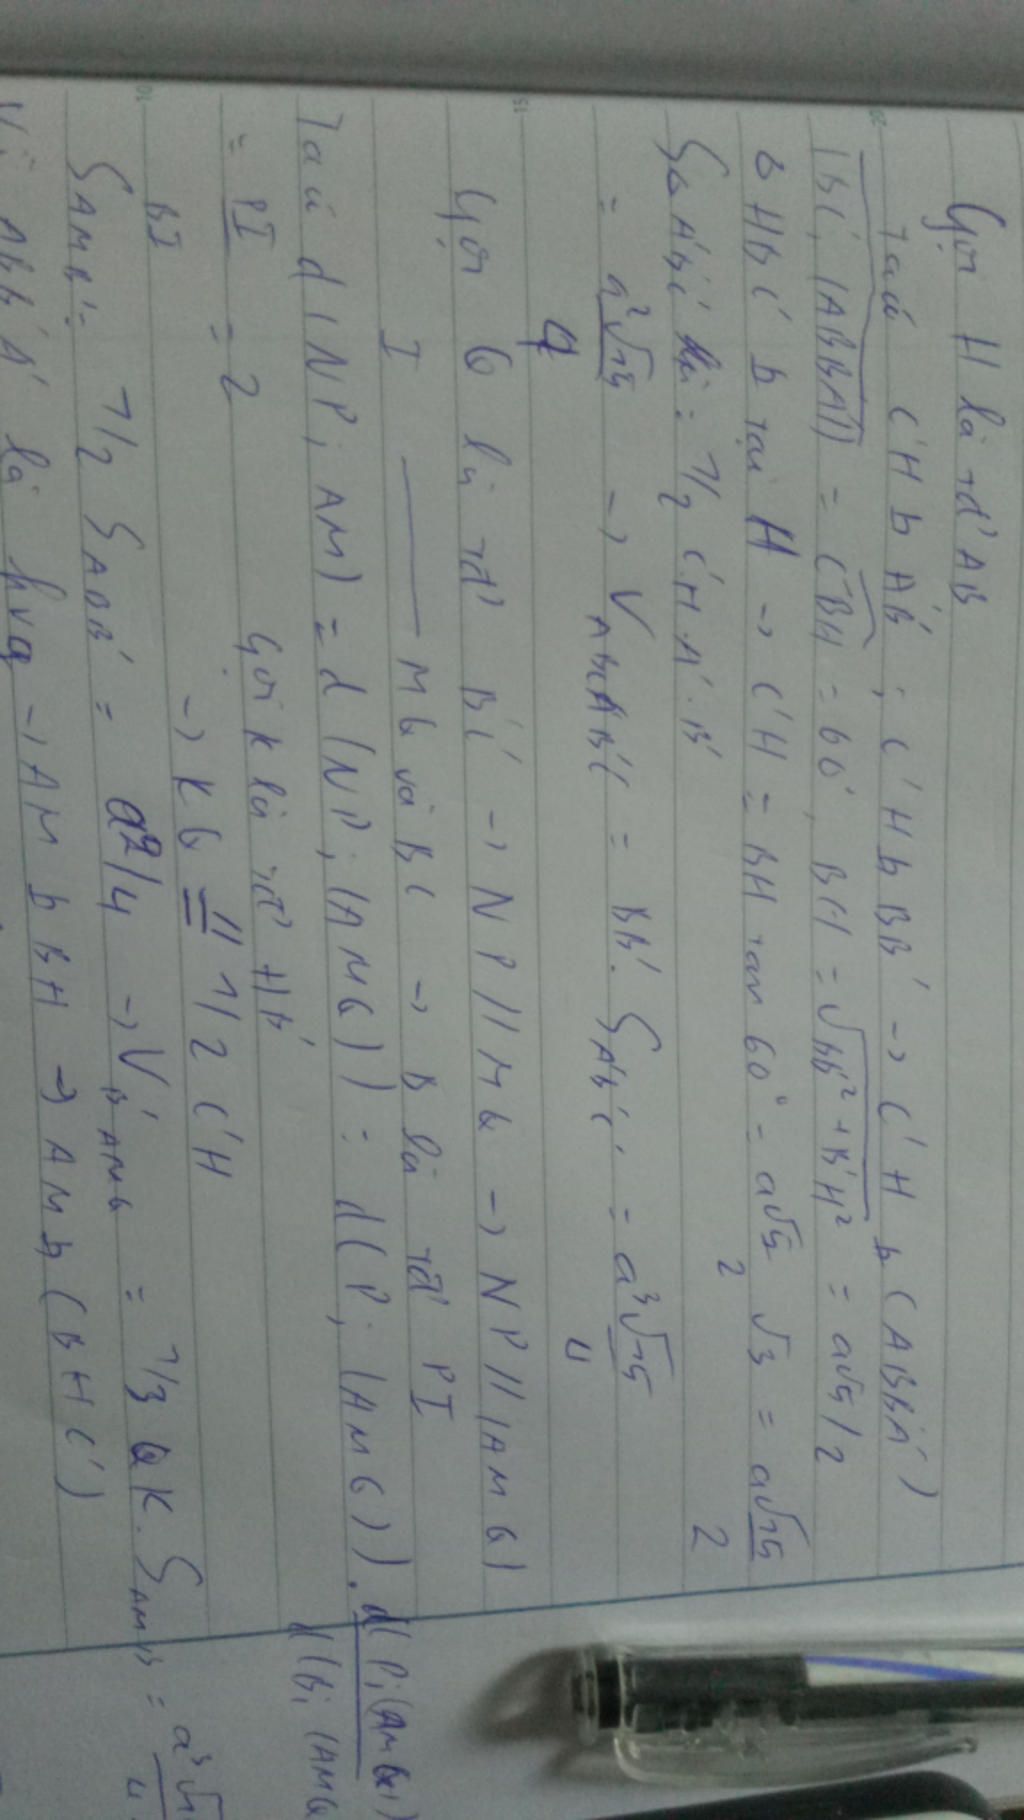 Gọi H là tđ AB
Ta có C'H ⊥ A'B' ; C'H ⊥ BB' → C'H ⊥ (ABB'A')
(BC', (ABB'A')) = C'BH = 60°, BH = √BB'² + B'H² = a√5/2
Δ HBC' ⊥ tại H → C'H = BH tan 60° = a√5/2 √3 = a√15/2
SΔA'B'C' là : 1/2 C'H A'.B'
= a²√15/4 → V ABCA'B'C' = BB'. S A'B'C' = a³√15/4
Gọi Q là tđ B'C' → NP // MQ → NP // (AMQ)
I —— MQ và BC → B là tđ PI
Ta có d (NP; AM) = d (NP; (AMQ)) = d(P; (AMQ)). d(P;(AMQ))
d(B; (AMQ
= PI/BI = 2 Gọi K là tđ HB'
→ KQ // = 1/2 C'H
S AMB' = 1/2 S ABB' = a²/4 → V B'AMQ = 1/3 QK. S AMB' =
ABB'A' là hvg → AM ⊥ BH → AM ⊥ (BHC')
15
10